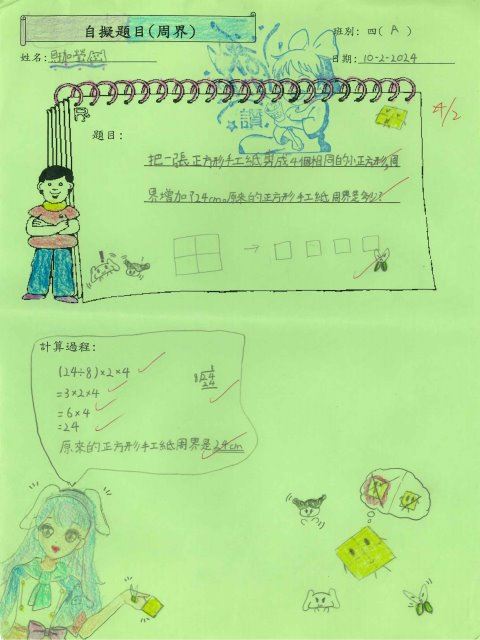 自擬題目(周界)
班別: 四( A )
姓名:
日期: 10-2-2024
4/2
題目:
把一張正方形手工紙剪成4個相同的小正方形,周
界增加了24cm。原來的正方形手工紙周界是多少?
計算過程:
(24÷8)×2×4
=3×2×4
=6×4
=24
3
8 24
24
原來的正方形手工紙周界是24cm